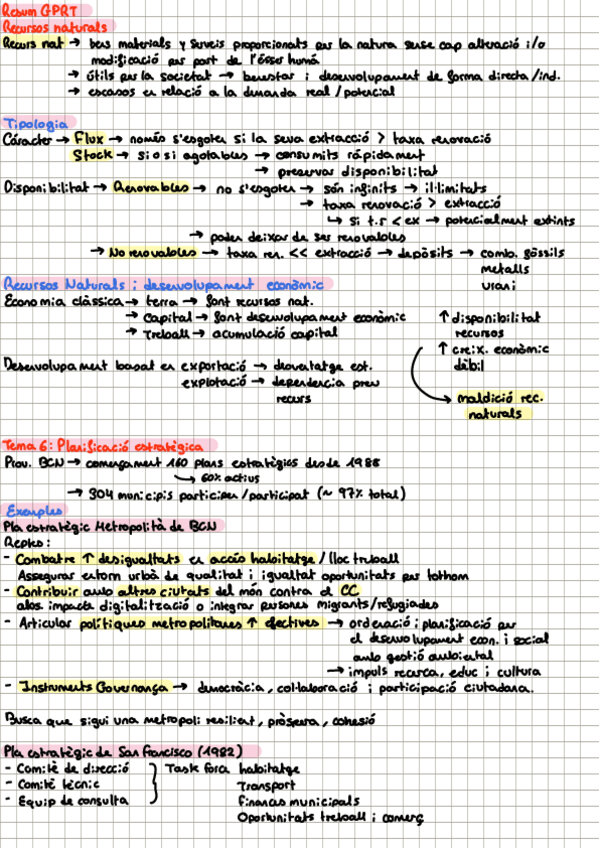 Resum GPRT
Recursos naturals
Recurs nat → bens materials y serveis proporcionats per la natura sense cap alteració i/o
modificació per part de l'ésser humà
→ útils per la societat → benestar i desenvolupament de forma directa/ind.
→ escasos en relació a la demanda real / potencial
Tipologia
Càracter → Flux → només s'esgoten si la seva extracció > taxa renovació
Stock → si o si agotables → consumits ràpidament
→ preservar disponibilitat
Disponibilitat → Renovables → no s'esgoten → són infinits → il·limitats
→ taxa renovació > extracció
↳ si t.r < ex → potencialment extints
→ poden deixar de ser renovables
→ No renovables → taxa ren. << extracció → depòsits → comb. fòssils
metalls
urani
Recursos Naturals i desenvolupament econòmic
Economia clàssica → terra → font recursos nat.
→ Capital → font desenvolupament econòmic
→ Treball → acumulació capital
↑ disponibilitat
recursos
↑ creix. econòmic
dèbil
→ maldició rec.
naturals
Desenvolupament basat en exportació → desventatge est.
explotació → dependencia preu
recurs
Tema 6: Planificació estratègica
Prov. BCN → començament 160 plans estratègics desde 1988
↳ 60% actius
→ 304 municipis participen/participat (~ 97% total)
Exemples
Pla estratègic Metropolità de BCN
Reptes:
- Combatre ↑ desigualtats en accés habitatge / lloc treball
Assegurar entorn urbà de qualitat i igualtat oportunitats per tothom
- Contribuir amb altres ciutats del món contra el CC
altres impactes digitalització o integrar persones migrants/refugiades
- Articular polítiques metropolitanes ↑ efectives → ordenació i planificació per
el desenvolupament econ. i social
amb gestió ambiental
→ impuls recerca, educ i cultura
- Instruments Governança → democràcia, col·laboració i participació ciutadana.
Busca que sigui una metropoli resilient, pròspera, cohesió
Pla estratègic de San Francisco (1982)
- Comitè de direcció } Task force habitatge
- Comitè tècnic Transport
- Equip de consulta Finances municipals
Oportunitats treball i comerç